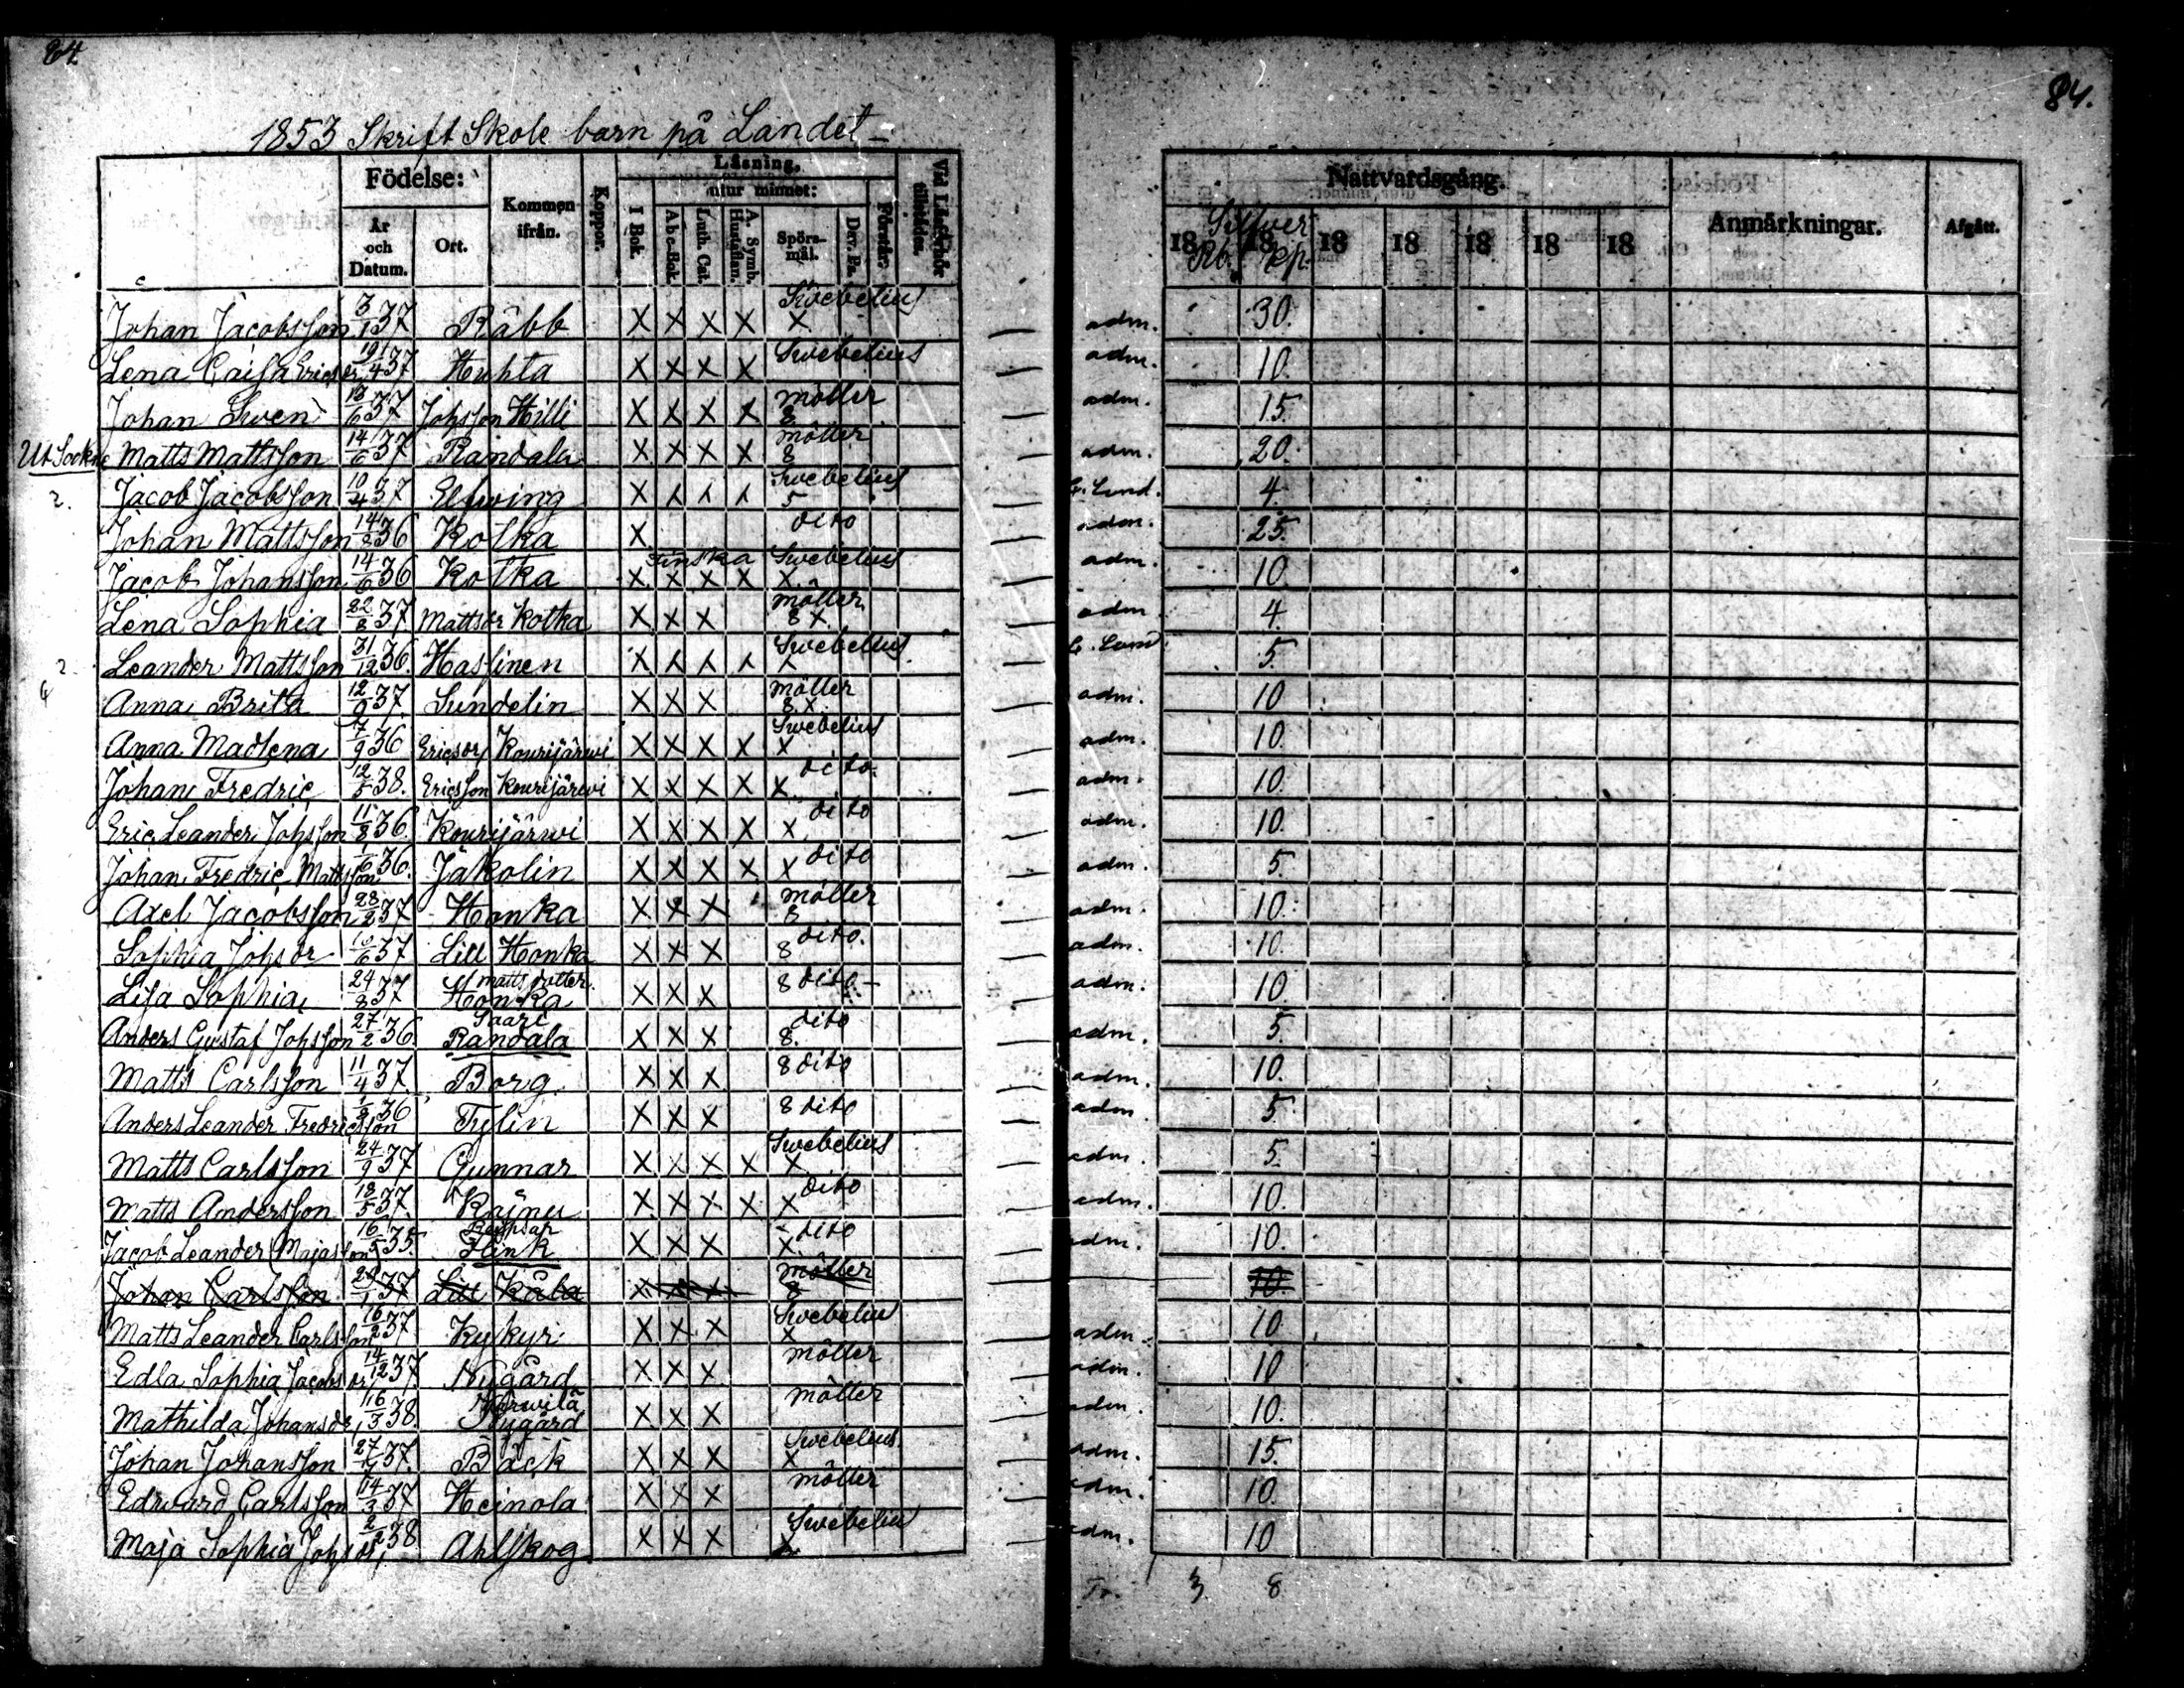 84.
84.
1853 Skrift Skole barn på Landet
Födelse: Kommen ifrån. Koppor. Läsning. Vid Läseförhör tillstädes.
År och Datum. Ort. I Bok. utur minnet: Förstår.
Abc-Bok. Luth. Cat. A. Symb. Hustaflan. Spörsmål. Dav. Ps.
Nattvardsgång. Anmärkningar. Afgått.
18 18 18 18 18 18 18
Silfver
Rb. Kp.
Johan Jacobsson 3/1 37 Råbb X X X X Swebelius X adm. 30.
Lena Caisa Ericsdr 19/4 37 Huhta X X X X Swebelius adm. 10.
Johan Sven 13/6 37 Johsson Hilli X X X X möller 8 adm. 15.
Ut Sockne Matts Mattsson 14/6 37 Randala X X X X möller 8 adm. 20.
2. Jacob Jacobsson 10/4 37 Elfving X X X X Swebelius 5 G. Lund. 4.
Johan Mattsson 14/8 36 Kotka X dito adm. 25.
Jacob Johansson 14/6 36 Kotka Finska X X X X Swebelius X adm. 10.
Lena Sophia 22/8 37 Mattsdr Kotka X X X möller 8 X. adm. 4.
2. Leander Mattsson 31/12 36. Hassinen X X X X Swebelius X G. Lund. 5.
Anna Brita 12/9 37 Sundelin X X X möller 8 X. adm. 10
Anna Madlena 7/9 36 Ericsdr Kourijärwi X X X X Swebelius X adm. 10.
Johan Fredric 12/5 38. Ericsson Kourijärwi X X X X X dito. adm. 10.
Eric Leander Johsson 11/8 36. Kourijärwi X X X X X dito adm. 10.
Johan Fredric Mattsson 1/6 36. Jakolin X X X X X dito adm. 5.
Axel Jacobsson 28/2 37 Honka X X X möller 8 adm. 10.
Sophia Johsdr 10/6 37 Lill Honka X X X 8 dito. adm. 10.
Lisa Sophia 24/8 37 Matts dotter. Honka X X X 8 dito adm. 10.
Anders Gustaf Johsson 27/2 36. Saari Randala X X X 8. dito adm. 5.
Matts Carlsson 11/4 37. Borg X X X 8 dito adm. 10.
Anders Leander Fredricsson 1/9 36 Tylin X X X 8 dito adm. 5.
Matts Carlsson 24/9 37 Gunnar X X X X Swebelius X adm. 5.
Matts Andersson 18/5 37. Käinu X X X X X dito adm. 10.
Jacob Leander Majasson 16/5 35. Flink X X X X dito adm. 10.
Johan Carlsson 29/1 37 Lill Kåla X X X möller 8 10.
Matts Leander Carlsson 16/2 37 Kykyri X X X Swebelius X adm. 10
Edla Sophia Jacobsdr 14/12 37 Nygård X X X möller adm. 10
Mathilda Johansdr 16/3 38. Järwilä Nygård X X X möller adm. 10.
Johan Johansson 27/ 37. Bäck X X X Swebelius X adm. 15.
Edward Carlsson 14/3 37 Heinola X X X möller adm. 10.
Maja Sophia Johsdr 2/2 38 Ahlskog X X X Swebelius X adm. 10
3 8